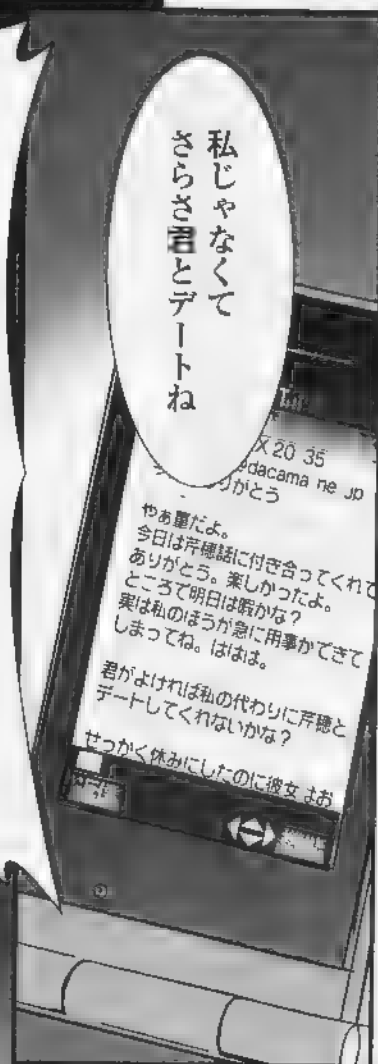 私じゃなくて
さらさ君とデートね
X 20 35
edacama ne jp
りがとう
やぁ董だよ。
今日は芹穂話に付き合ってくれて
ありがとう。楽しかったよ。
ところで明日は暇かな？
実は私のほうが急に用事ができて
しまってね。ははは。
君がよければ私の代わりに芹穂と
デートしてくれないかな？
せっかく休みにしたのに彼女はお